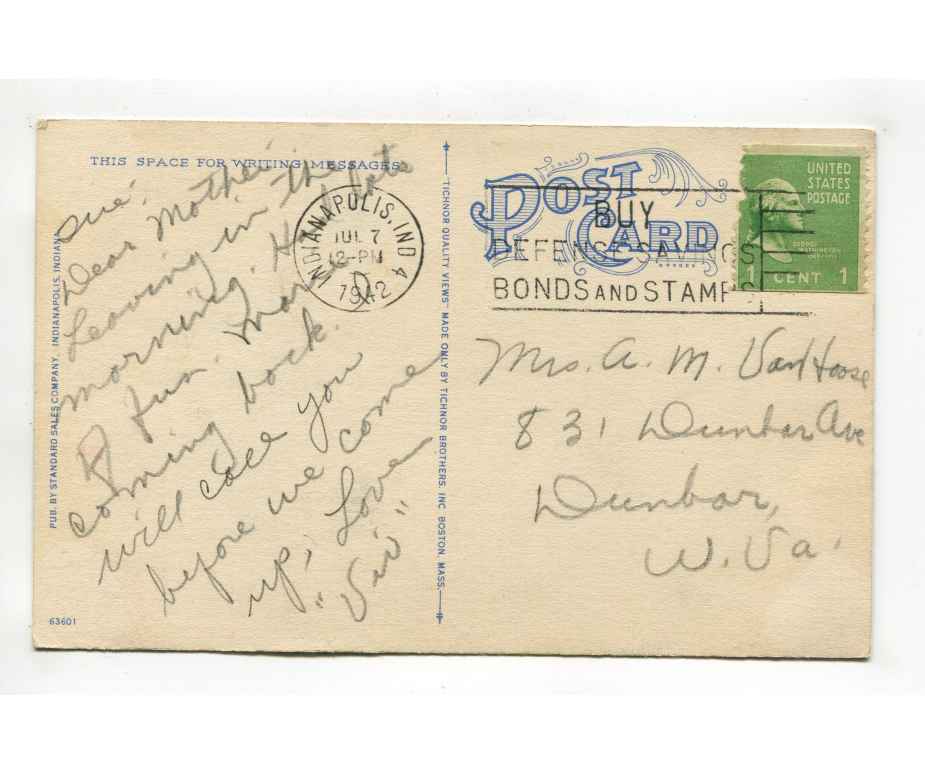 THIS SPACE FOR WRITING MESSAGES
Tue,
Dear Mother,
Leaving in the
morning. Had lots
of fun. Mary
coming back.
Will call you
before we come
up, Love
"Vir"
PUB. BY STANDARD SALES COMPANY, INDIANAPOLIS, INDIANA
63601
INDIANAPOLIS, IND 4
JUL 7
12-PM
1942
D
TICHNOR QUALITY VIEWS MADE ONLY BY TICHNOR BROTHERS, INC BOSTON, MASS.
POST CARD
BUY
DEFENSE SAVINGS
BONDS AND STAMPS
UNITED
STATES
POSTAGE
GEORGE
WASHINGTON
1 CENT 1
Mrs. A. M. VanHoose
831 Dunbar Ave
Dunbar,
W. Va.